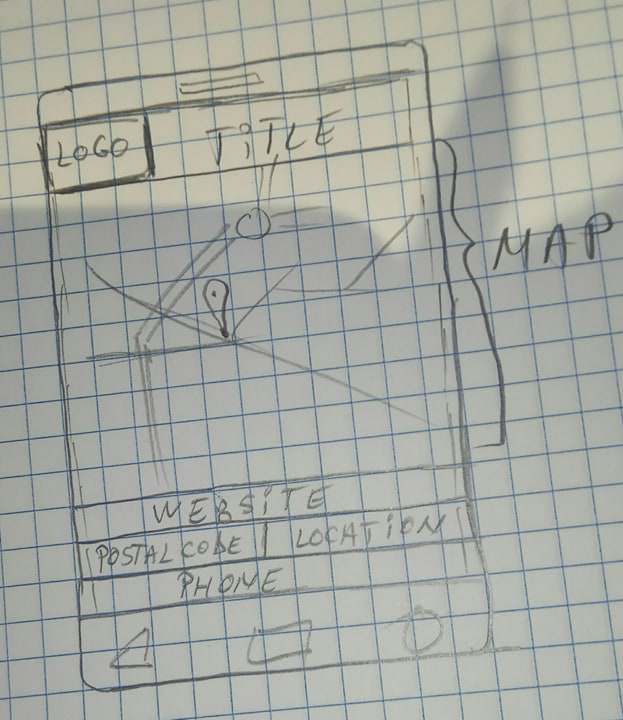 LOGO TiTLE
MAP
WEBSiTE
POSTAL CODE LOCATiON
PHONE